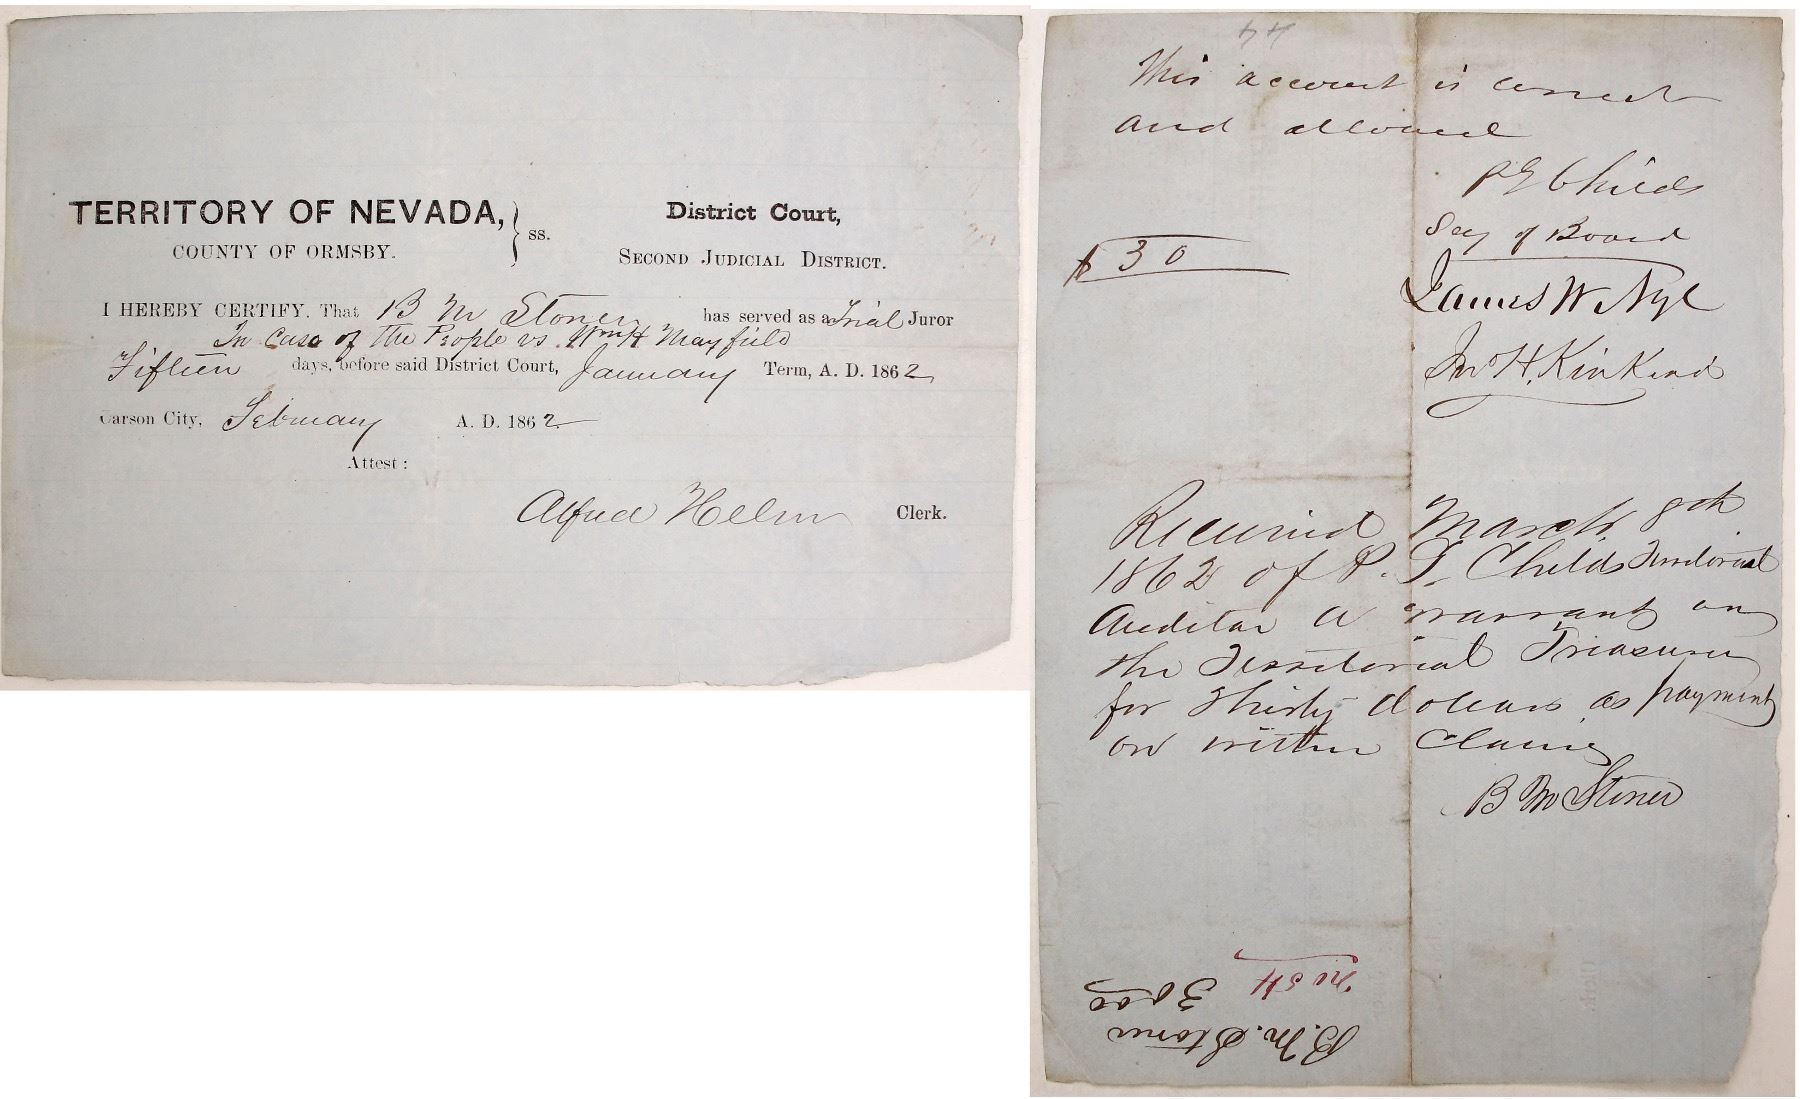 TERRITORY OF NEVADA, } ss.
COUNTY OF ORMSBY.
District Court,
SECOND JUDICIAL DISTRICT.
I HEREBY CERTIFY, That B M Stoner has served as a Trial Juror
In case of the People vs. Wm H Mayfield
Fifteen days, before said District Court, January Term, A. D. 1862
Carson City, February A. D. 1862
Attest:
Alfred Helm Clerk.
44
This account is correct
and allowed
P G Childs
Secy of Board
$30
James W Nye
Jno H. Kinkead
Received March 8th
1862 of P. G. Childs Territorial
Auditor a warrant on
the Territorial Treasurer
for Thirty dollars as payment
on within Claim
B M Stoner
B. M. Stoner
30 00
no 54